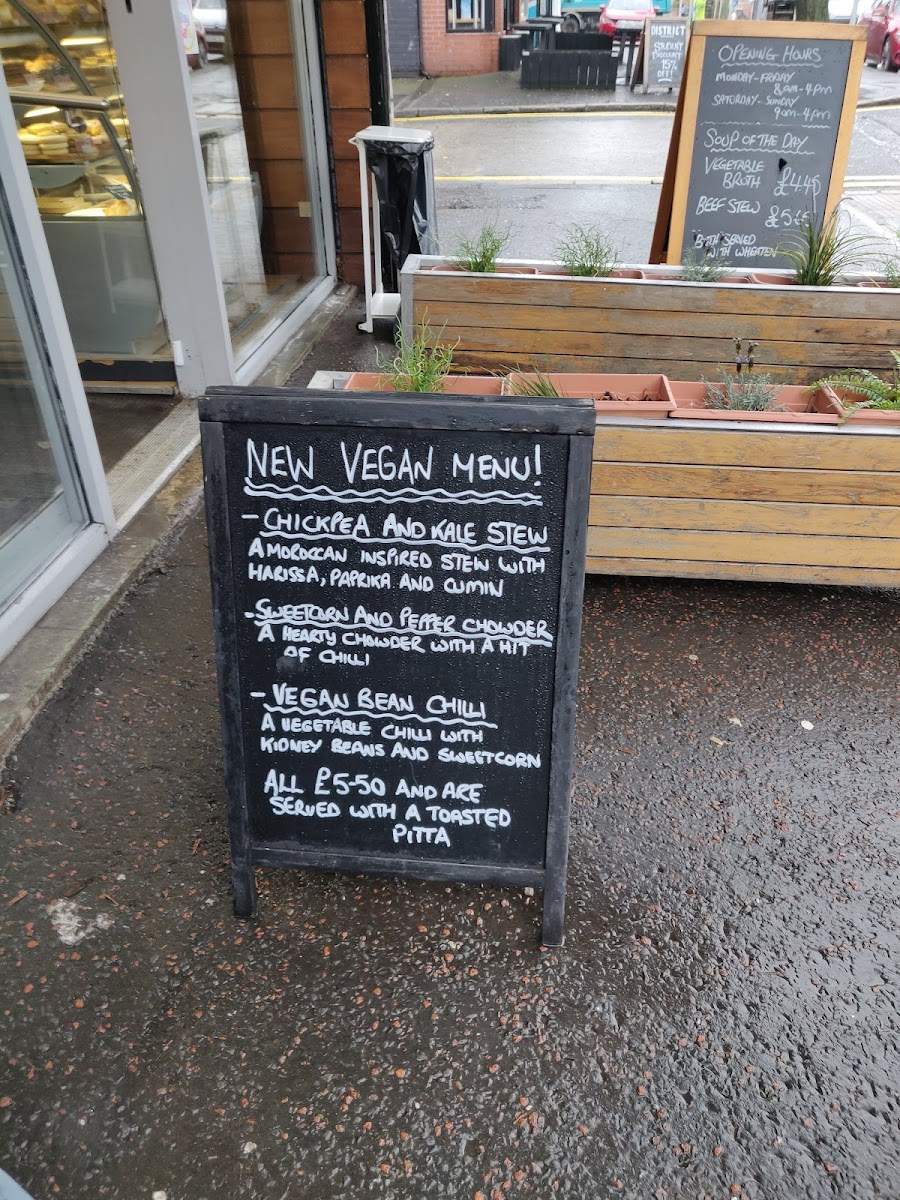 NEW VEGAN MENU!
- CHICKPEA AND KALE STEW
A MOROCCAN INSPIRED STEW WITH
HARISSA, PAPRIKA AND CUMIN
- SWEETCORN AND PEPPER CHOWDER
A HEARTY CHOWDER WITH A HIT
OF CHILLI
- VEGAN BEAN CHILLI
A VEGETABLE CHILLI WITH
KIDNEY BEANS AND SWEETCORN
ALL £5-50 AND ARE
SERVED WITH A TOASTED
PITTA
OPENING HOURS
MONDAY-FRIDAY
8am-4pm
SATURDAY-SUNDAY
9am-4pm
SOUP OF THE DAY
VEGETABLE
BROTH £4.45
BEEF STEW
BOTH SERVED
WITH WHEATEN
DISTRICT
STUDENT
DISCOUNT
15%
OFF!